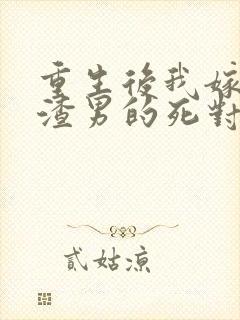 重生後我嫁
渣男的死對
貳姑涼